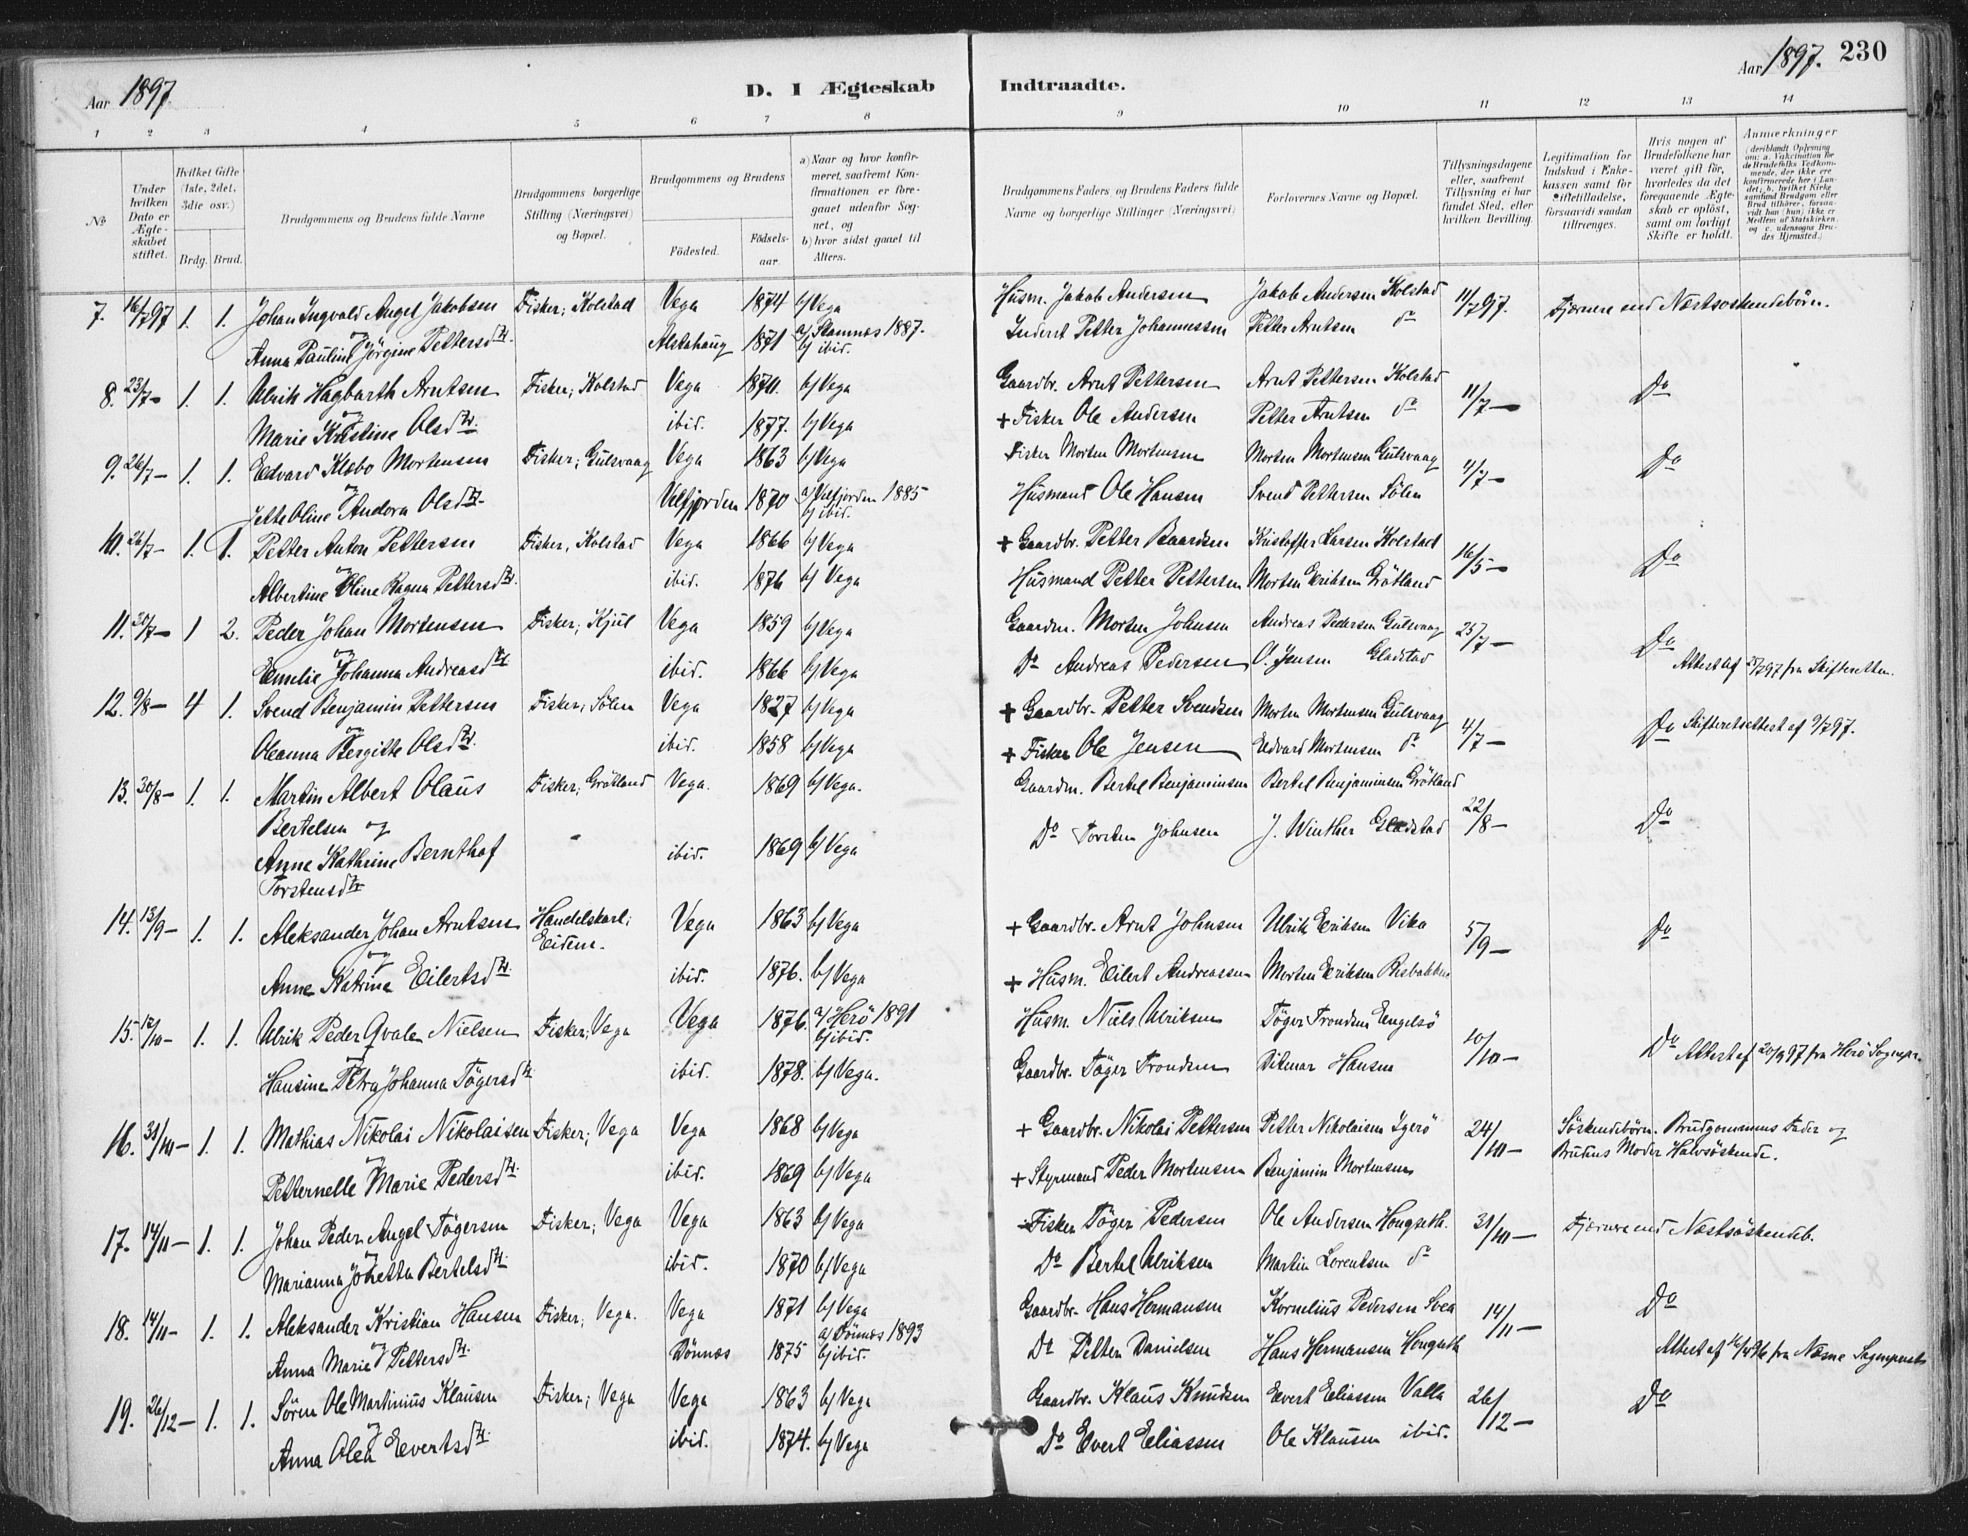 Aar 1897.
D. I Ægteskab Indtraadte.
Aar 1897. 230
1 2 3 4 5 6 7 8 9 10 11 12 13 14
No
Under hvilken Dato er Ægteskabet stiftet.
Hvilket Gifte (1ste, 2det, 3die osv.)
Brdg. Brud.
Brudgommens og Brudens fulde Navne
Brudgommens borgerlige Stilling (Næringsvei) og Bopæl.
Brudgommens og Brudens
Födested. Födselsaar.
a) Naar og hvor konfirmeret, saafremt Konfirmationen er foregaaet udenfor Sognet, og
b) hvor sidst gaaet til Alters.
Brudgommens Faders og Brudens Faders fulde Navne og borgerlige Stillinger (Næringsvei)
Forlovernes Navne og Bopæl.
Tillysningsdagene eller, saafremt Tillysning ei har fundet Sted, efter hvilken Bevilling.
Legitimation for Indskud i Enkekassen samt for Giftetilladelse, forsaavidt saadan tiltrænges.
Hvis nogen af Brudefolkene har været gift för, hvorledes da det foregaaende Ægteskab er oplöst, samt om lovligt Skifte er holdt.
Anmærkninger (deriblandt Oplysning om: a. Vakcination for de Brudefolks Vedkommende, der ikke ere konfirmerede her i Landet; b. hvilket Kirkesamfund Brudgom eller Brud tilhører, forsaavidt han (hun) ikke er Medlem af Statskirken, og c. udensogns Brudes Hjemsted.)
7. 16/7 97 1. 1. Johan Ingvald Angel Jakobsen Fisker; Kolstad Vega 1874 b/ Vega Husm. Jakob Andersen Jakob Andersen Kolstad 11/7 97. Fjernere end Næstsøskendebörn.
og Anna Pauline Jörgine Pettersdtr. Alstahaug 1871 a/ Stamnæs 1887. b/ ibid. Inderst Petter Johannessen Petter Arntsen do
8. 23/7 – 1. 1. Ulrik Hagbarth Arntsen Fisker; Kolstad Vega 1870. b/ Vega Gaardbr. Arnt Pettersen Arnt Pettersen Kolstad 11/7 – Do
og Marie Kristine Olsdtr. ibid. 1877. b/ Vega + Fisker Ole Andersen Petter Arntsen do
9. 26/7 – 1. 1. Edvard Klæbo Mortensen Fisker; Gulsvaag Vega 1863 b/ Vega Fisker Morten Mortensen Morten Mortensen Gulsvaag 4/7 – Do
og Jette Oline Andora Olsdtr. Velfjorden 1870 a/ Velfjorden 1885 b/ ibid. Husmand Ole Hansen Svend Pettersen Sölen
10. 26/7 – 1. 1. Petter Anton Pettersen Fisker, Kolstad Vega 1866 b/ Vega + Gaardbr. Petter Baardsen Kristoffer Larsen Kolstad 16/5 – Do
og Albertine Oline Ragna Pettersdtr. ibid. 1876 b/ Vega Husmand Petter Pettersen Morten Eriksen Grötland
11. 30/7 – 1 2. Peder Johan Mortensen Fisker; Kjul Vega 1859 b/ Vega Gaardm. Morten Johnsen Andreas Pedersen Gulsvaag 25/7 – Do
og Emelie Johanna Andreasdtr ibid. 1866 b/ Vega Do Andreas Pedersen O. Jensen Gladstad Attest af 27/7 97 fra Skifteretten.
12. 9/8 – 4 1. Svend Benjamin Pettersen Fisker; Sölen Vega 1827 b/ Vega + Gaardbr. Petter Svendsen Morten Mortensen Gulsvaag 4/7 – Do Skifteretsattest af 9/7 97.
og Oleanna Bergitte Olsdtr. ibid. 1858 b/ Vega + Fisker Ole Jensen Edvard Mortensen do
13. 30/8 – 1. 1. Martin Albert Olaus Fisker; Grötland Vega. 1869 b/ Vega. Gaardm. Bertel Benjaminsen Bertel Benjaminsen Grötland
Bertelsen og 22/8 – Do
Anne Kathrine Bernthof ibid. 1869 b/ Vega Do Torsten Johnsen J. Winther Gladstad
Torstensdtr
14. 13/9 – 1. 1. Aleksander Johan Arntsen Handelskarl; Eidem. Vega 1863 b/ Vega + Gaardbr. Arnt Johnsen Ulrik Eriksen Vika 5/9 – Do
og Anne Katrina Eilertsdtr. ibid. 1876. b/ Vega + Husm. Eilert Andreassen Morten Eriksen Risbakken
15. 12/10 – 1. 1. Ulrik Peder Qvale Nielsen Fisker; Vega Vega 1876. a/ Herö 1891 b/ ibid. Husm. Niels Ulriksen Töger Trondsen Engelsö 10/10 – Do Attest af 20/9 97 fra Herö Sognepr.
og Hansine Petra Johanna Tögersdtr ibid. 1878. b/ Vega. Gaardbr. Töger Trondsen Ditmar Hansen
16. 31/10 – 1. 1. Mathias Nikolai Nikolaisen Fisker; Vega Vega 1868 b/ Vega + Gaardbr. Nikolai Pettersen Petter Nikolaisen Igerö 24/10 – Söskendebörn. Brudgommens Fader og
og Petternelle Marie Pedersdtr. ibid. 1869 b/ Vega + Styrmand Peder Mortensen Benjamin Mortensen Brudens Moder Halvsöskende.
17. 14/11 – 1. 1. Johan Peder Angel Tögersen Fisker; Vega Vega 1863 b/ Vega Fisker Töger Pedersen Ole Andersen Hongseth. 31/10 – Fjernere end Næstsöskendeb.
og Marianna Johetta Bertelsdtr. ibid. 1870 b/ Vega Do Bertel Ulriksen Martin Lorentsen do
18. 14/11 – 1. 1. Aleksander Kristian Hansen Fisker; Vega. Vega 1871 b/ Vega Gaardbr. Hans Hermansen Kornelius Pedersen Svea 14/11 – Do
og Anna Marie Pettersdtr. Dönnæs 1875 a/ Dönnæs 1893 b/ ibid. Do Petter Danielsen Hans Hermansen Hongseth Attest af fra Næsne Sognepræst
19. 26/12 – 1. 1. Sören Ole Martinius Klausen Fisker; Vega Vega 1863 b/ Vega Gaardbr. Klaus Knudsen Evert Eliassen Valla 26/12 – Do
og Anna Olea Evertsdtr. ibid. 1874. b/ Vega Do Evert Eliassen Ole Klausen ibid.